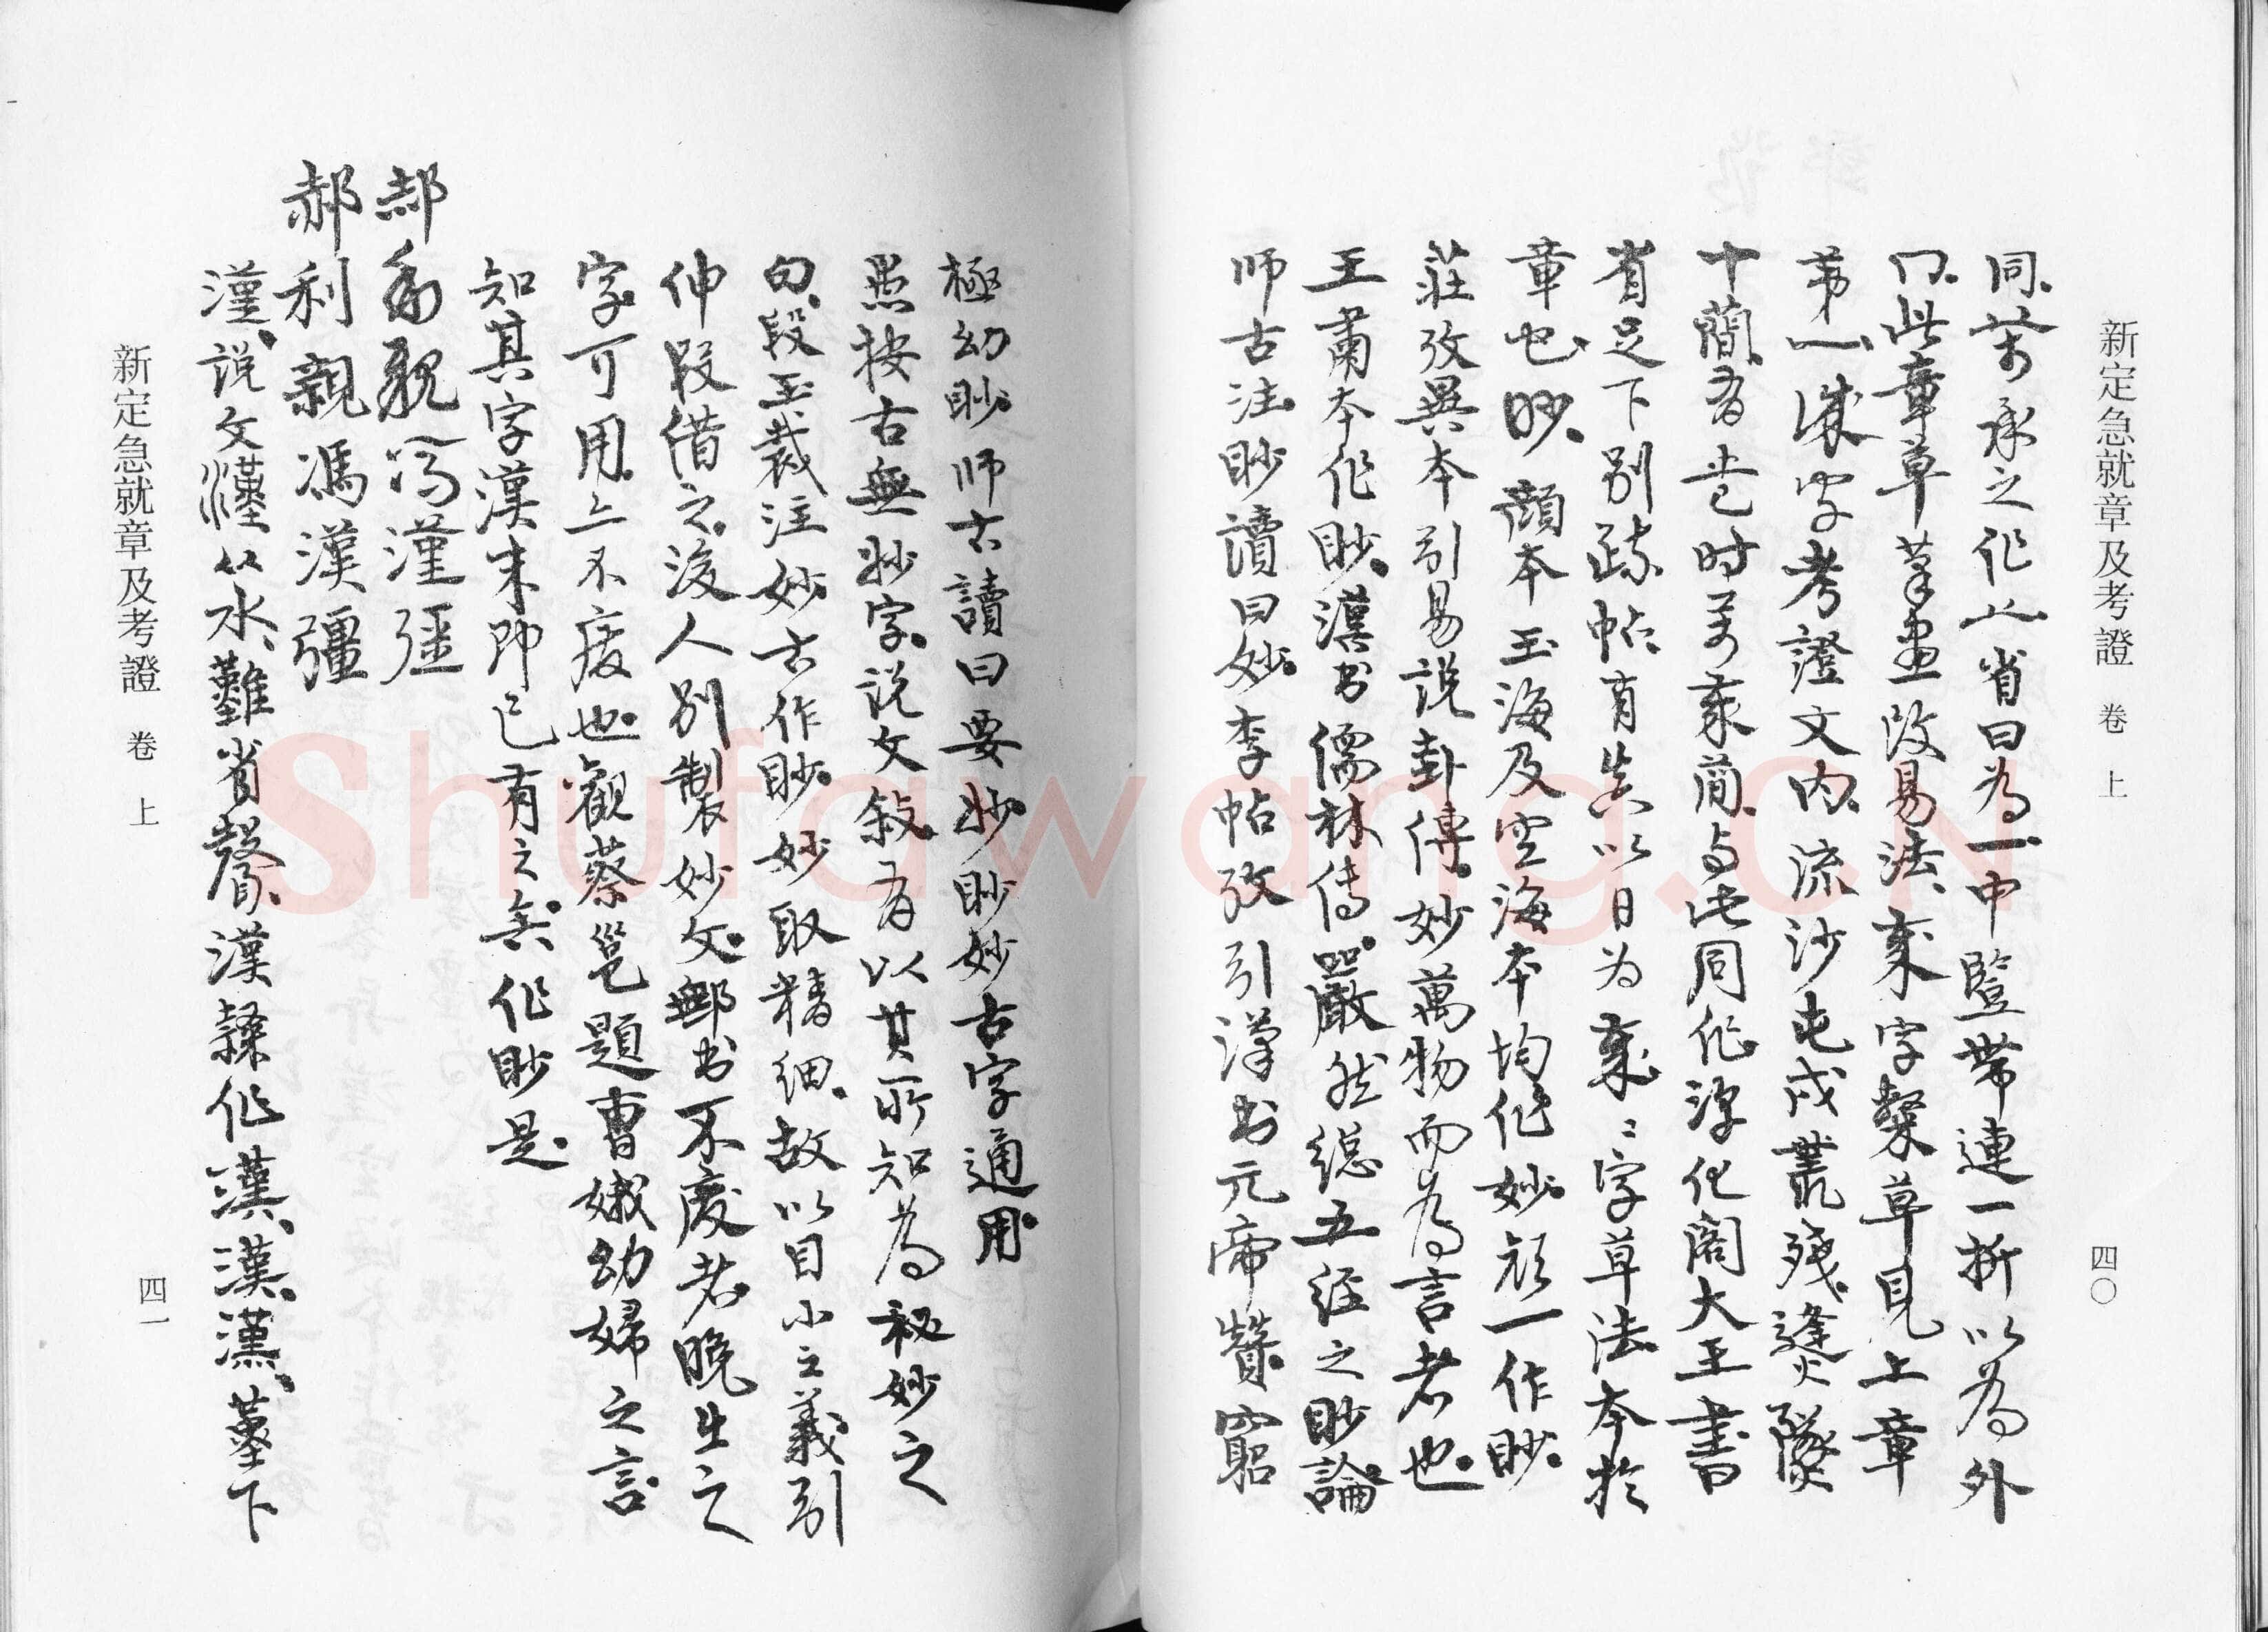 新定急就章及考證 卷上
四〇
同。前承之作止。省曰為一。中豎帶連一折以為外
冂。此章草筆畫改易法。乘字槩草見上章
第一。誅字考證文内。流沙屯戍叢殘。逢火隧
十蘭。有時前乘蘭。与此同作。淳化閣大王書
省足下别疏帖。有以日為乘。乘字草法本於
章也。眇。顏本玉海及空海本均作妙。顏一作眇。
莊攷異本引易說卦傳。妙萬物而為言者也。
王肅本作眇。漢书儒林傳。嚴然總五經之眇論
師古注。眇讀曰妙。李帖攷引漢书元帝贊。窮
極幼眇。师古讀曰要妙。眇妙古字通用。
愚按古無妙字。說文敍有以其所知為秘妙之
句。段玉裁注。妙古作眇。妙取精細。故以目小之義引
伸叚借之。後人别製妙文。鄦书不廢者。晚生之
字可用。上不廢也。觀蔡邕題曹娥幼婦之言
知其字漢末即已有之矣。作眇是。
郝利親馮漢彊
郝利親馮漢彊
漢。說文漢从水。難省聲。漢隸作漢。漢。漢。堇下
新定急就章及考證 卷上
四一
Shufawang.CN